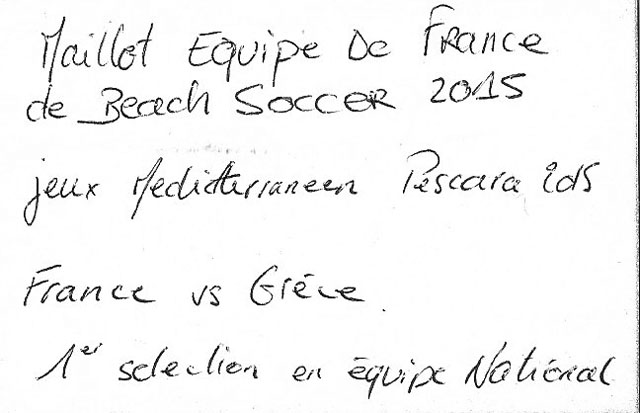 Maillot Equipe De France
de Beach Soccer 2015
jeux Mediterraneen Pescara 2015
France vs Grèce
1er selection en équipe National